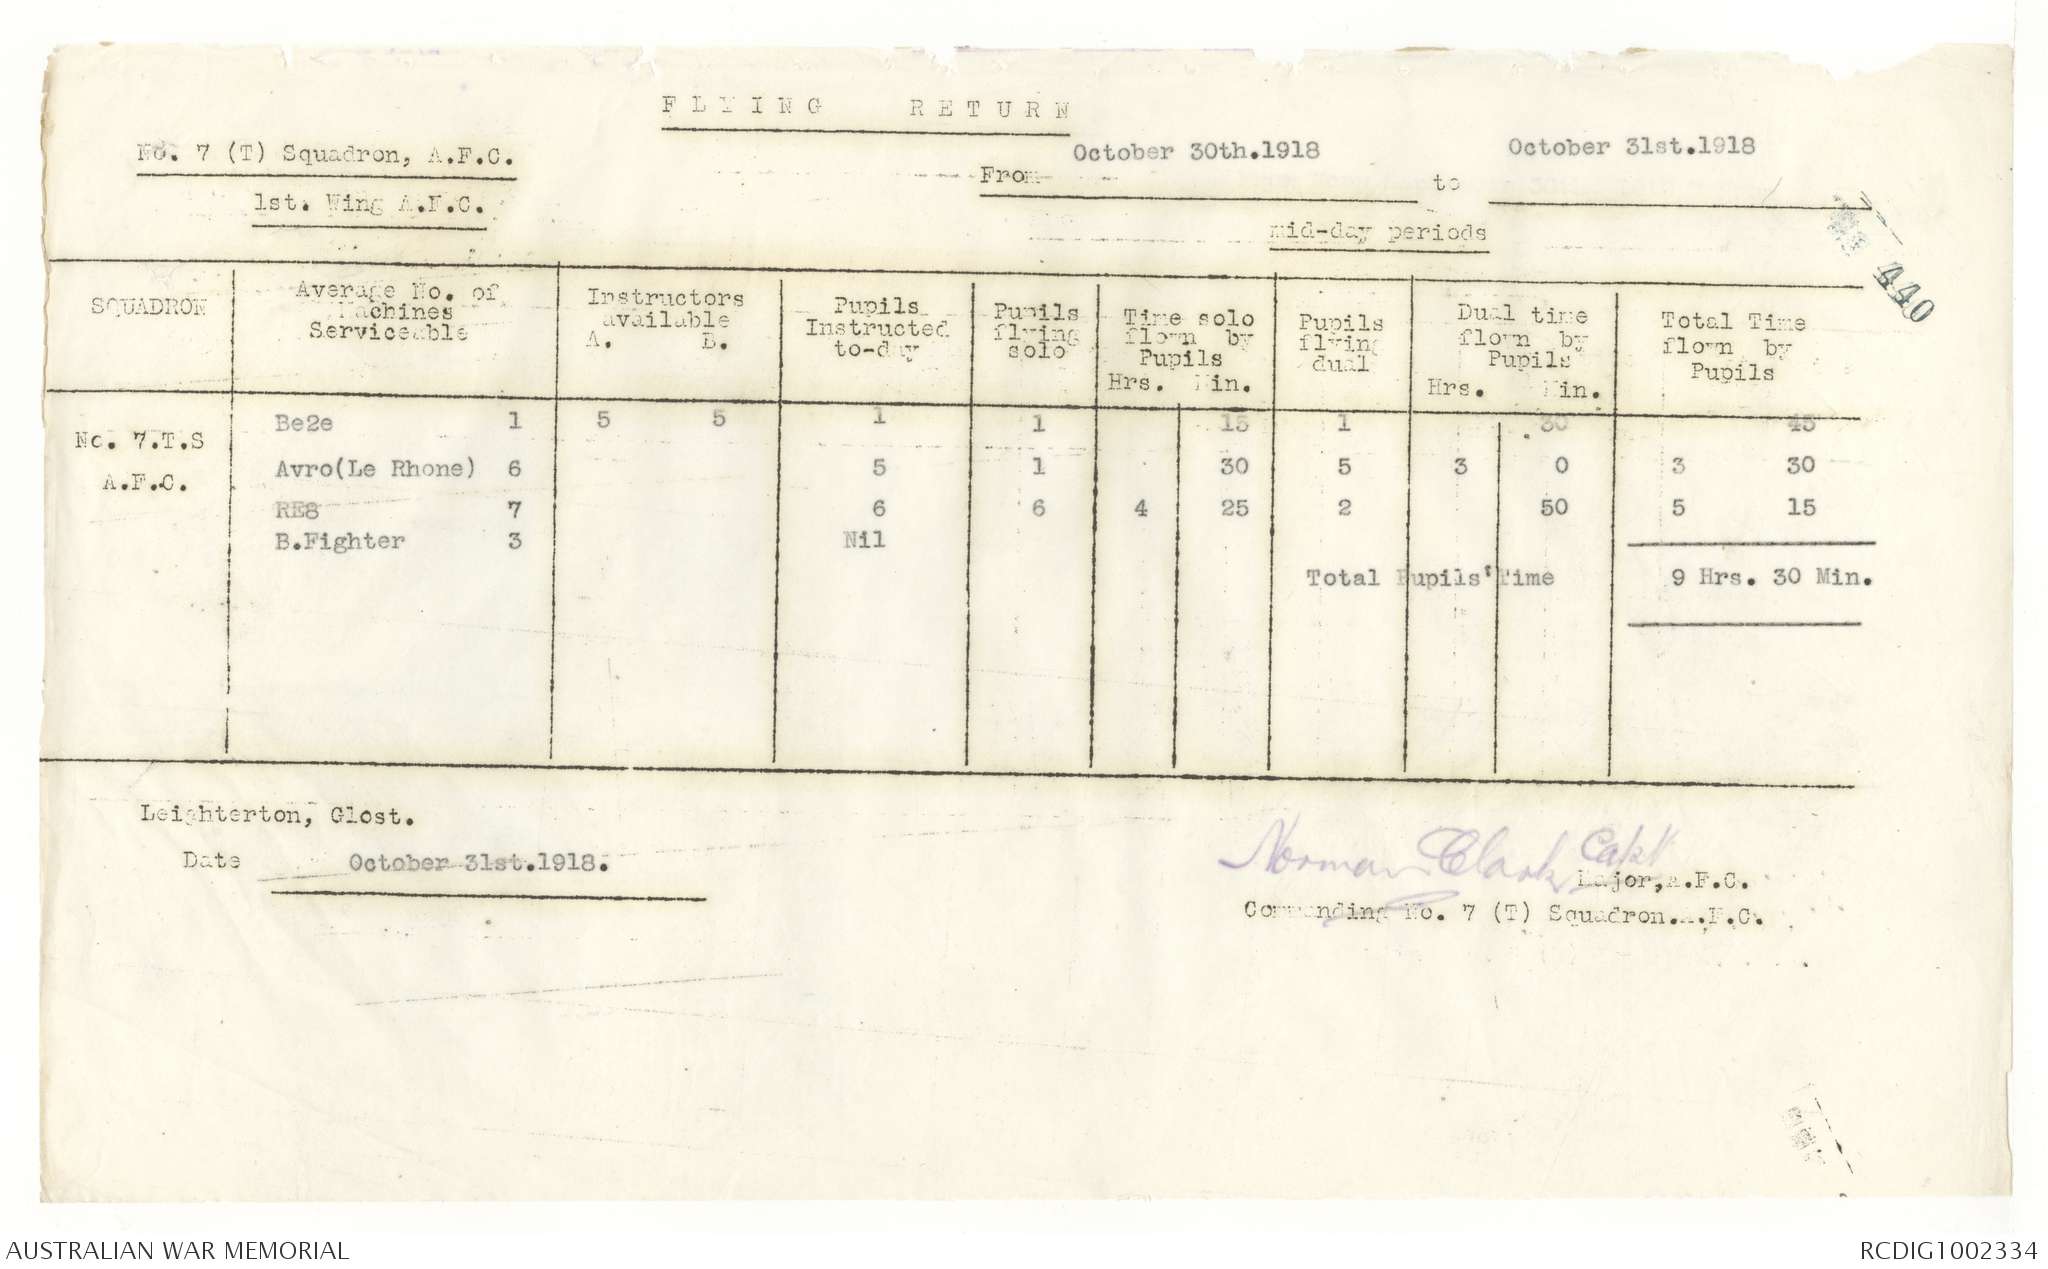 FLYING RETURN
No. 7 (T) Squadron, A.F.C.
1st. Wing A.F.C.
From October 30th.1918 to October 31st.1918
mid-day periods
440
SQUADRON | Average No. of Machines Serviceable | Instructors available A. B. | Pupils Instructed to-day | Pupils flying solo | Time solo flown by Pupils Hrs. Min. | Pupils flying dual | Dual time flown by Pupils Hrs. Min. | Total Time flown by Pupils
No. 7.T.S Be2e 1 5 5 1 1 15 1 30 45
A.F.C. Avro(Le Rhone) 6 5 1 30 5 3 0 3 30
RE8 7 6 6 4 25 2 50 5 15
B.Fighter 3 Nil
Total Pupils' Time 9 Hrs. 30 Min.
Leighterton, Glost.
Date October 31st.1918.
Norman Clark Capt
Major, A.F.C.
Commanding No. 7 (T) Squadron.A.F.C.
AUSTRALIAN WAR MEMORIAL
RCDIG1002334